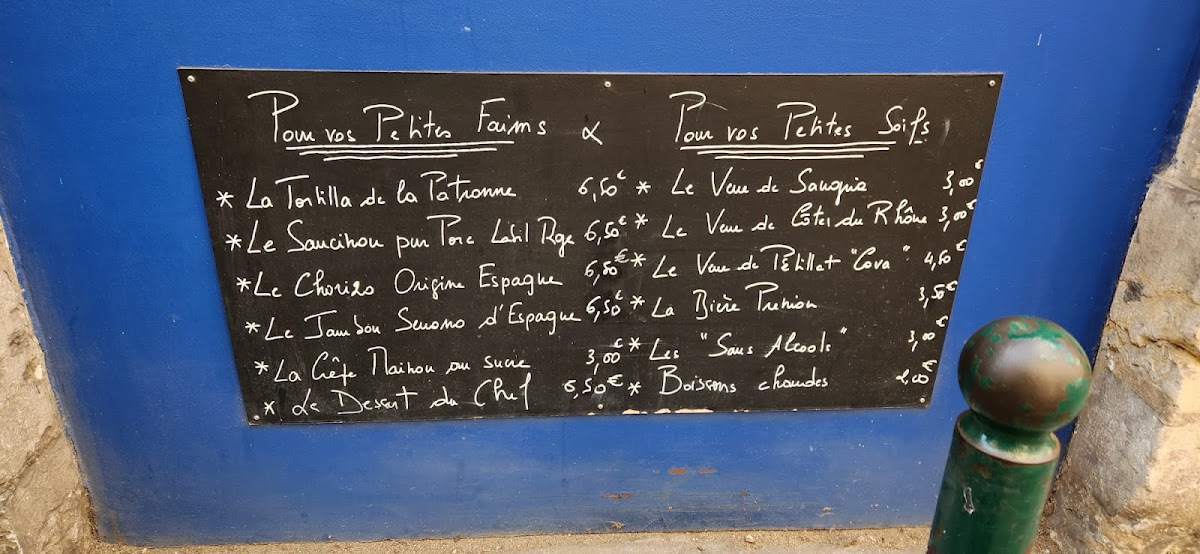 Pour vos Petites Faims & Pour vos Petites Soifs
* La Tortilla de la Patronne 6,50€
* Le Saucisson pur Porc Label Rge 6,50€
* Le Chorizo Origine Espagne 6,50€
* Le Jambon Serrano d'Espagne 6,50€
* La Crêpe Maison au sucre 3,00€
* Le Dessert du Chef 6,50€
* Le Verre de Sangria 3,00€
* Le Verre de Côtes du Rhône 3,00€
* Le Verre de Pétillant "Cava" 4,50€
* La Bière Pression 3,50€
* Les "Sans Alcools" 3,00€
* Boissons chaudes 2,00€